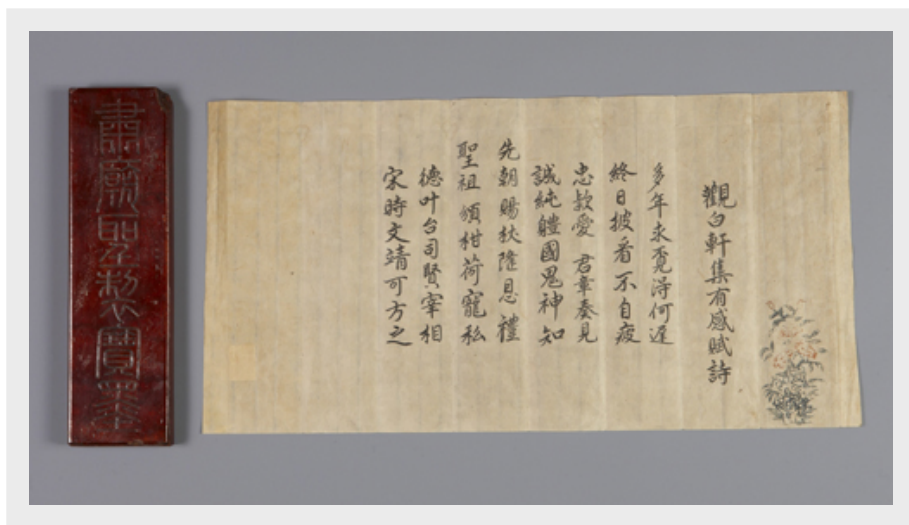 肅廟聖製寶墨
觀白軒集有感賦詩
多年求覓得何遲
終日披看不自疲
忠款愛 君章奏見
誠純軆國鬼神知
先朝賜杖隆恩禮
聖祖頒柑荷寵私
德叶台司賢宰相
宋時文靖可方之